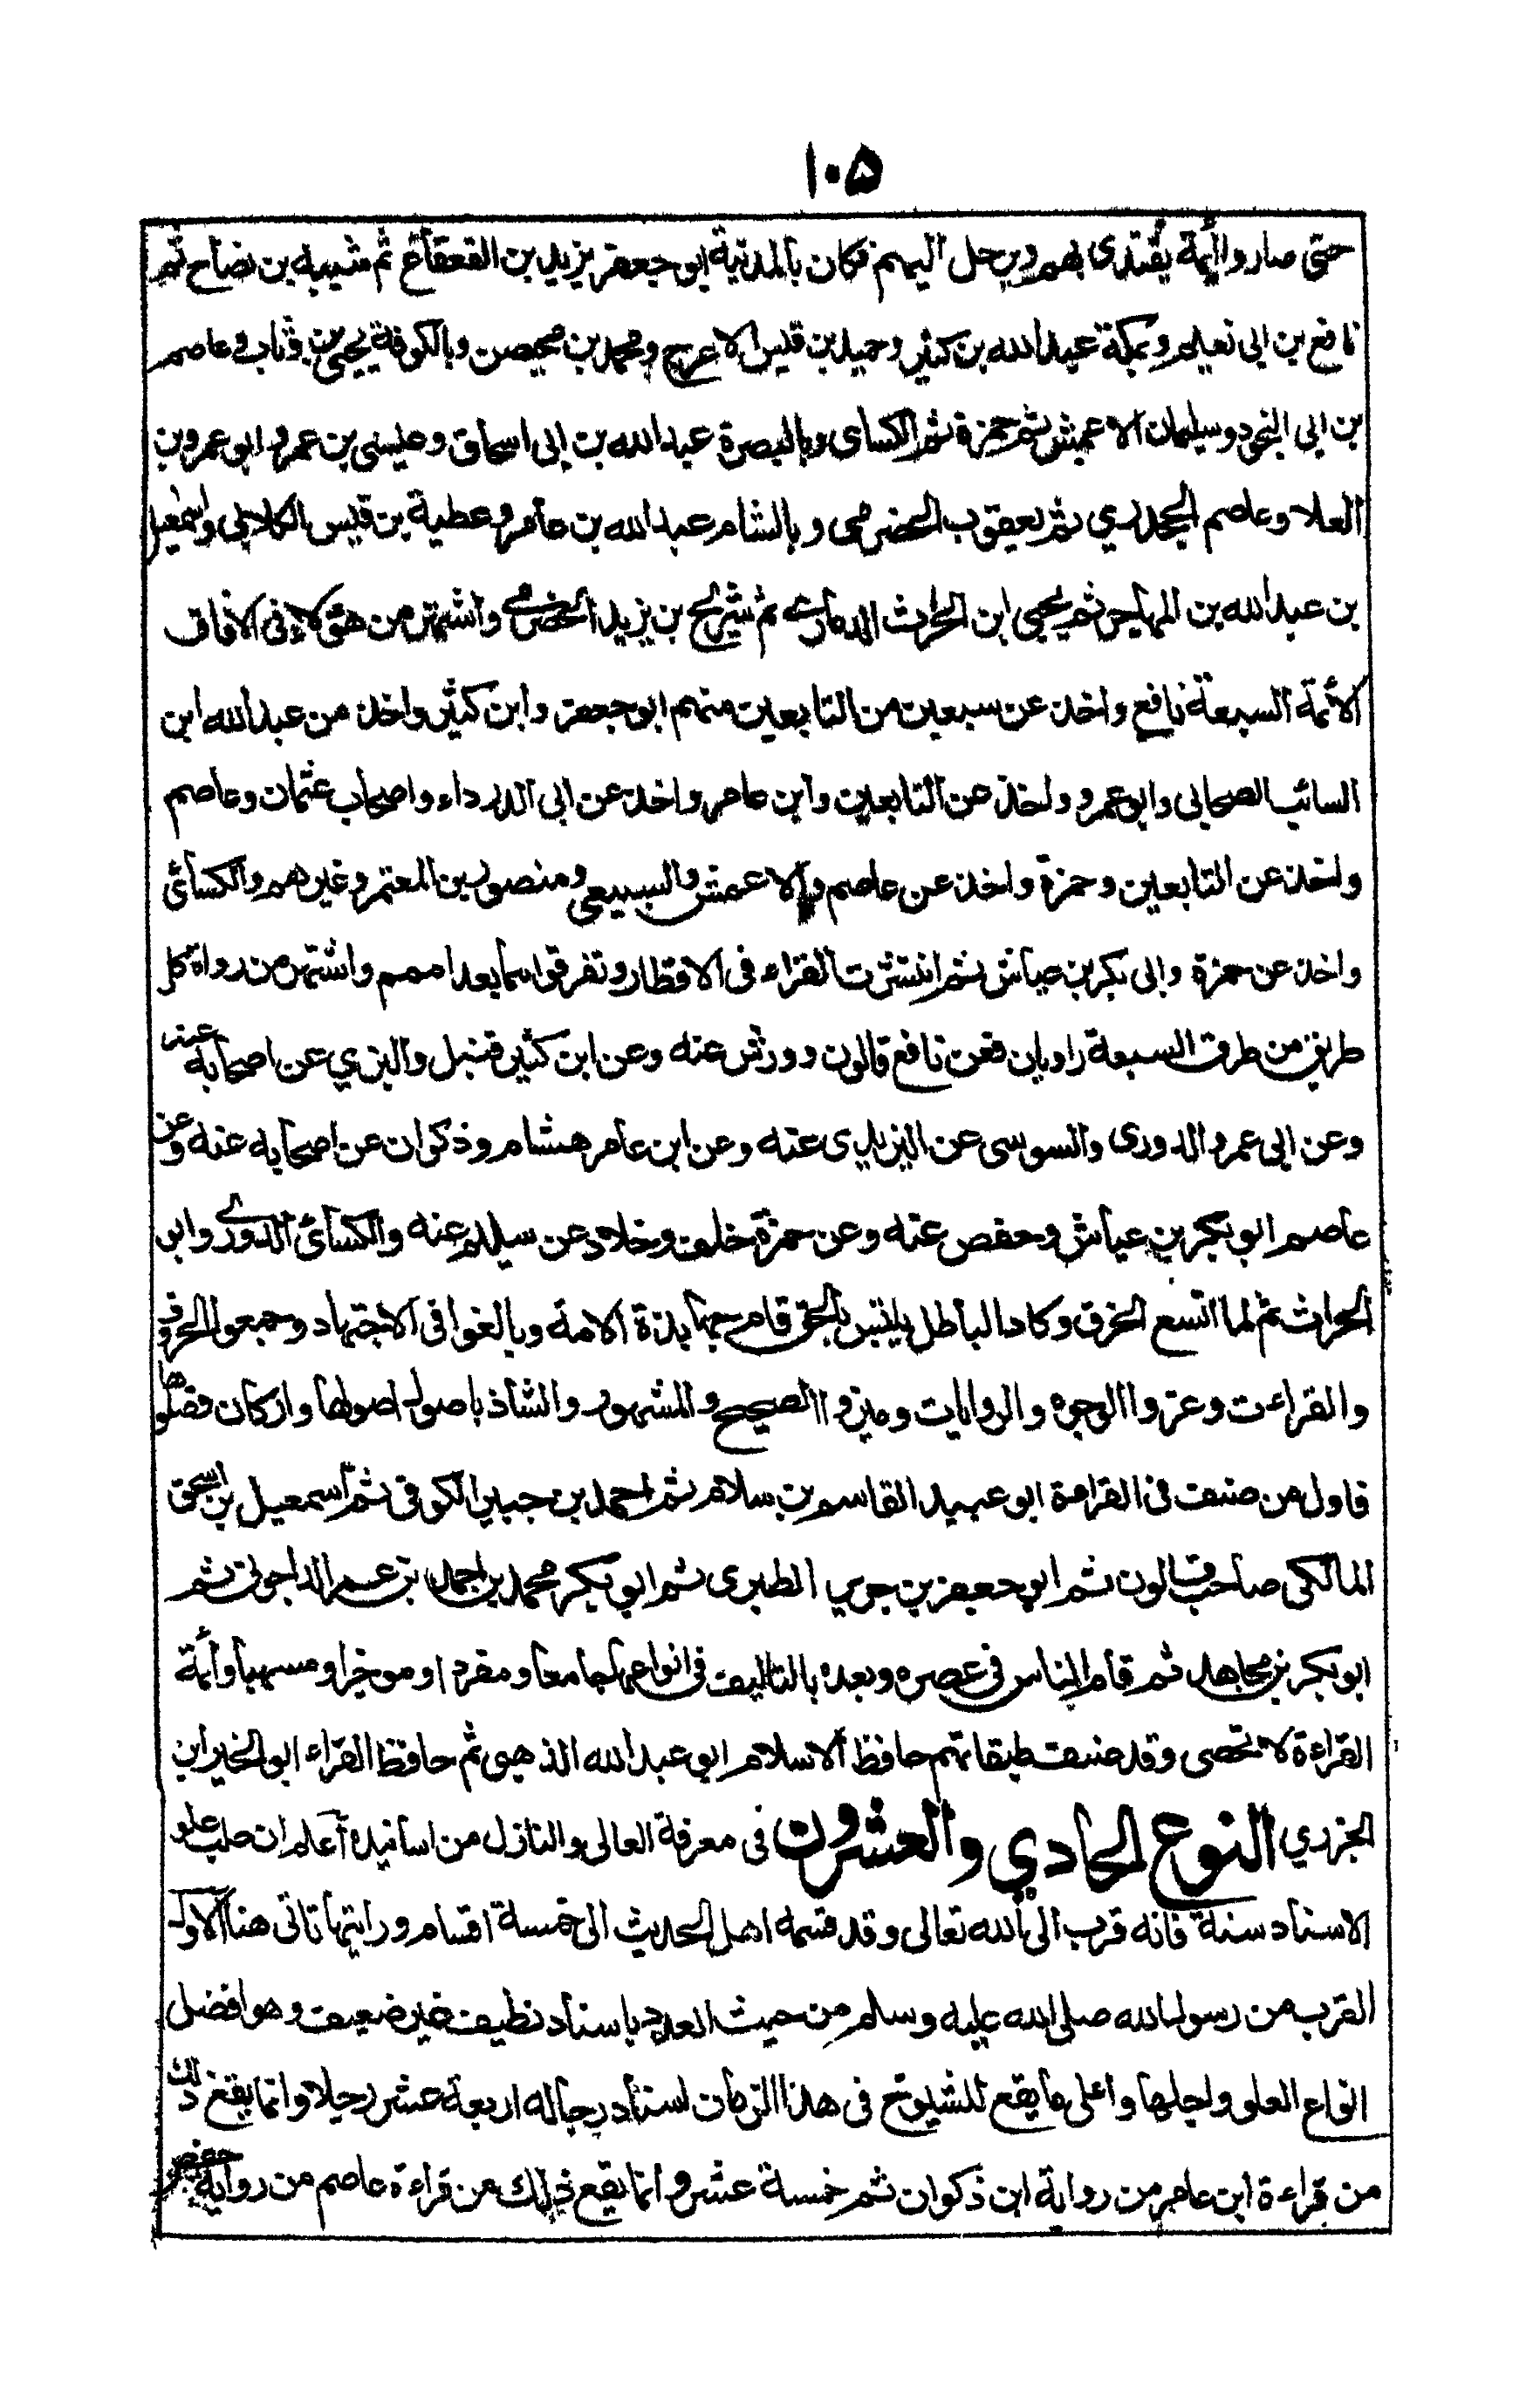 ١٠٥
حتى صاروا ائمة يُقتدى بهم ويرحل اليهم فكان بالمدينة ابو جعفر يزيد بن القعقاع ثم شيبة بن نصاح ثم
نافع بن ابى نعيم وبمكة عبد الله بن كثير وحميد بن قيس الاعرج ومحمد بن محيصن وبالكوفة يحيى بن وثاب وعاصم
بن ابى النجود وسليمان الاعمش ثم حمزة ثم الكساى وبالبصرة عبد الله بن ابى اسحاق وعيسى بن عمرو ابو عمرو بن
العلا وعاصم الجحدري ثم يعقوب الحضرمى وبالشام عبد الله بن عامر وعطية بن قيس الكلابى واسمعيل
بن عبد الله بن المهاجر ثم يحيى ابن الحارث الذمارى ثم شريح بن يزيد الحضرمى واشتهر من هؤلاء فى الافاق
الأئمة السبعة نافع واخذ عن سبعين من التابعين منهم ابو جعفر وابن كثير واخذ من عبد الله ابن
السائب الصحابى وابو عمرو واخذ عن التابعين وابن عامر واخذ عن ابى الدرداء واصحاب عثمان وعاصم
واخذ عن التابعين وحمزة واخذ عن عاصم والاعمش والسبيعى ومنصور بن المعتمر وغيرهم والكسائى
واخذ عن حمزة وابى بكر بن عياش ثم انتشرت القراء فى الاقطار وتفرقوا امما بعد امم واشتهر من رواة كل
طريق من طرق السبعة راويان فعن نافع قالون وورش عنه وعن ابن كثير قنبل والبزي عن اصحابه عنه
وعن ابى عمرو الدورى والسوسى عن اليزيدى عنه وعن ابن عامر هشام وذكوان عن اصحابه عنه وعن
عاصم ابو بكر بن عياش وحفص عنه وعن حمزة خلف وخلاد عن سليم عنه والكسائى الدورى وابو
الحارث ثم لما اتسع الخرق وكاد الباطل يلتبس بالحق قام جهابذة الامة وبالغوا فى الاجتهاد وجمعوا الحروف
والقراءت وعزوا الوجوه والروايات وميزوا الصحيح والمشهور والشاذ باصول اصولها واركان فصلوها
فاول من صنف فى القراءة ابو عبيد القاسم بن سلام ثم احمد بن جبير الكوفى ثم اسمعيل بن اسحق
المالكى صاحب قالون ثم ابو جعفر بن جرير الطبرى ثم ابو بكر محمد بن احمد بن عمر الداجونى ثم
ابو بكر بن مجاهد ثم قام الناس فى عصره وبعده بالتاليف فى انواعها جامعا ومفردا وموجزا ومسهبا وأئمة
القراءة لا تحصى وقد صنف طبقاتهم حافظ الاسلام ابو عبد الله الذهبى ثم حافظ القراء ابو الخير ابن
الجزري النوع الحادي والعشرون فى معرفة العالى والنازل من اسانيده اعلم ان طلب علو
الاسناد سنة فانه قرب الى الله تعالى وقد قسمه اهل الحديث الى خمسة اقسام ورايتها تاتى هنا الاول
القرب من رسول الله صلى الله عليه وسلم من حيث العدد باسناد نظيف غير ضعيف وهو افضل
انواع العلو واجلها واعلى ما يقع للشيوخ فى هذا الزمان اسناد رجاله اربعة عشر رجلا وانما يقع ذلك
من قراءة ابن عامر من رواية ابن ذكوان ثم خمسة عشر وانما يقع ذلك من قراءة عاصم من رواية حفص